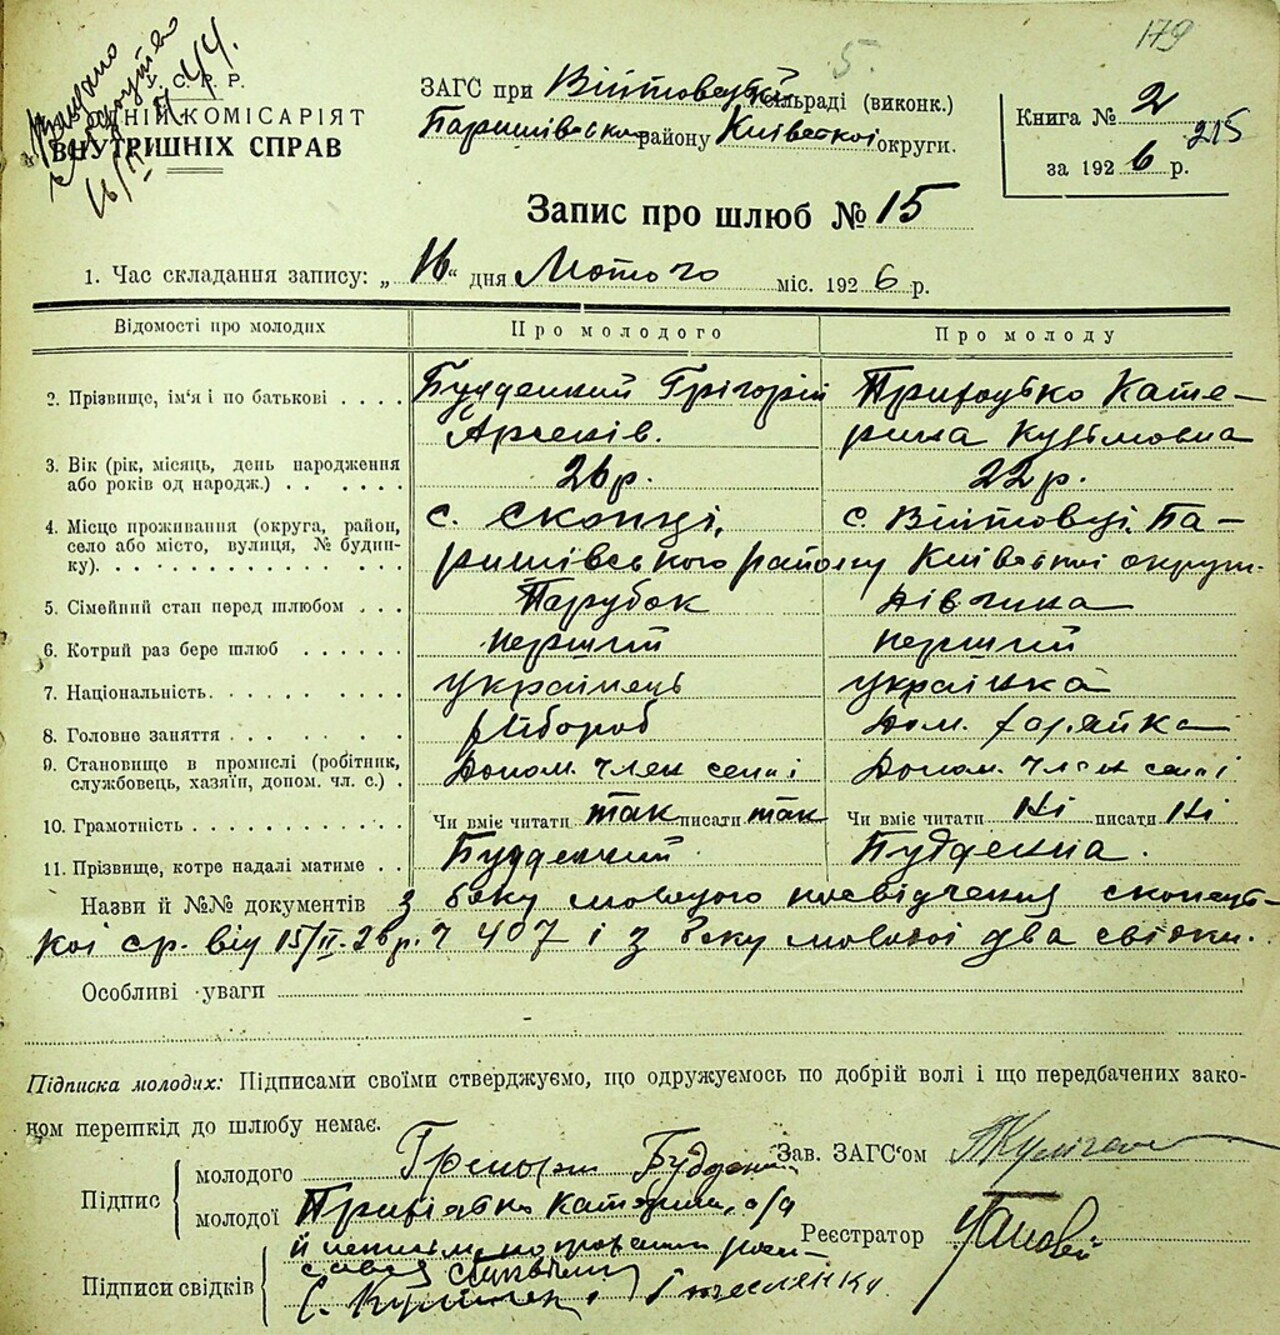 179
5.
У. С. Р. Р.
НІЙ КОМІСАРІЯТ
ВНУТРИШНІХ СПРАВ
ЗАГС при Війтовецькій сільраді (виконк.)
Баришівського району Київської округи.
Книга № 2
215
за 1926 р.
Запис про шлюб № 15
1. Час складання запису: „16“ дня Лютого міс. 1926 р.
Відомості про молодих Про молодого Про молоду
2. Прізвище, ім'я і по батькові . . . . Григорій Кате-
рина Кузьмовна
3. Вік (рік, місяць, день народження
або років од народж.) . . . . . . 26 р. 22 р.
4. Місце проживання (округа, район, с. Скопці, с. Війтовці, Ба-
село або місто, вулиця, № будин-
ку). . . . . . . . . . . . . . . ришівського району Київської округи.
5. Сімейний стан перед шлюбом . . . Парубок дівчина
6. Котрий раз бере шлюб . . . . . . перший перший
7. Національність. . . . . . . . . . українець українка
8. Головне заняття . . . . . . . . хлібороб дом. хазяйка
9. Становище в промислі (робітник,
службовець, хазяїн, допом. чл. с.) . Допом. член семі Допом. член семі
10. Грамотність . . . . . . . . . . . . Чи вміє читати так писати так Чи вміє читати Ні писати Ні
11. Прізвище, котре надалі матиме . .
Назви й №№ документів з боку молодого посвідчення скопець-
кої ср. від 15/II-26 р. ч 407 і з боку молодої два свідки.
Особливі уваги
Підписка молодих: Підписами своїми стверджуємо, що одружуємось по добрій волі і що передбачених зако-
ном перешкід до шлюбу немає.
Зав. ЗАГС'ом
Підпис молодого
молодої Катерина, а/за
Реєстратор
Підписи свідків